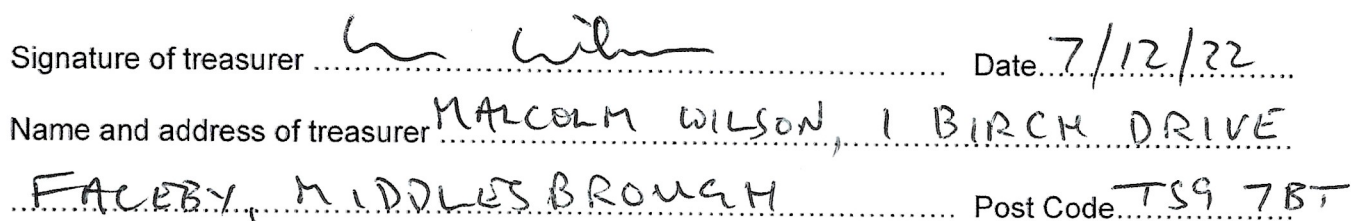 Signature of treasurer Wilson Date 7/12/22
Name and address of treasurer MALCOLM WILSON, 1 BIRCH DRIVE
FACEBY, MIDDLESBROUGH Post Code TS9 7BT